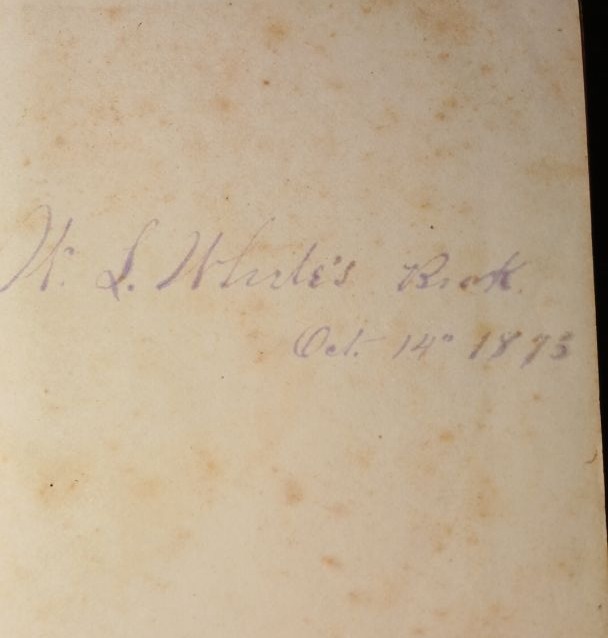 W. L. White's Book.
Oct. 14" 1893